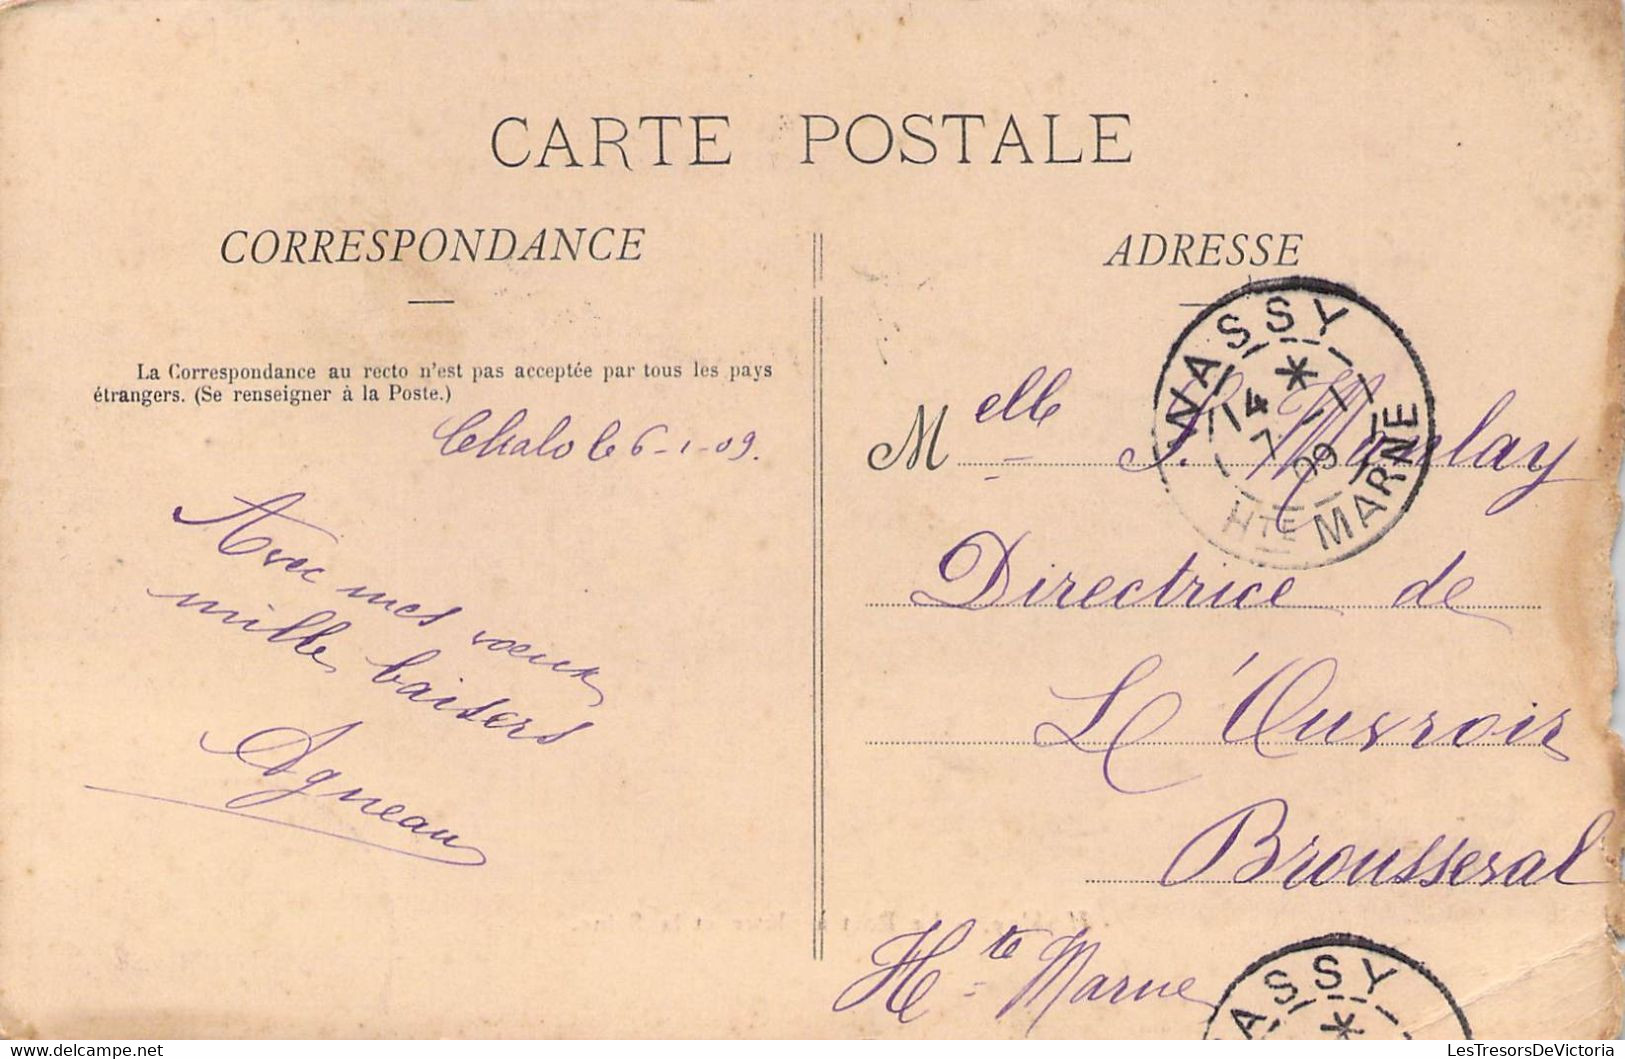 CARTE POSTALE
CORRESPONDANCE
La Correspondance au recto n'est pas acceptée par tous les pays
étrangers. (Se renseigner à la Poste.)
le 6-1-09.
Avec mes voeux
mille baisers
Agneau
ADRESSE
WASSY
14
7 1
09
HTE MARNE
Melle
Directrice de
L'Ouvroir
Brousseval
Hte Marne
ASSY
LesTresorsDeVictoria
www.delcampe.net